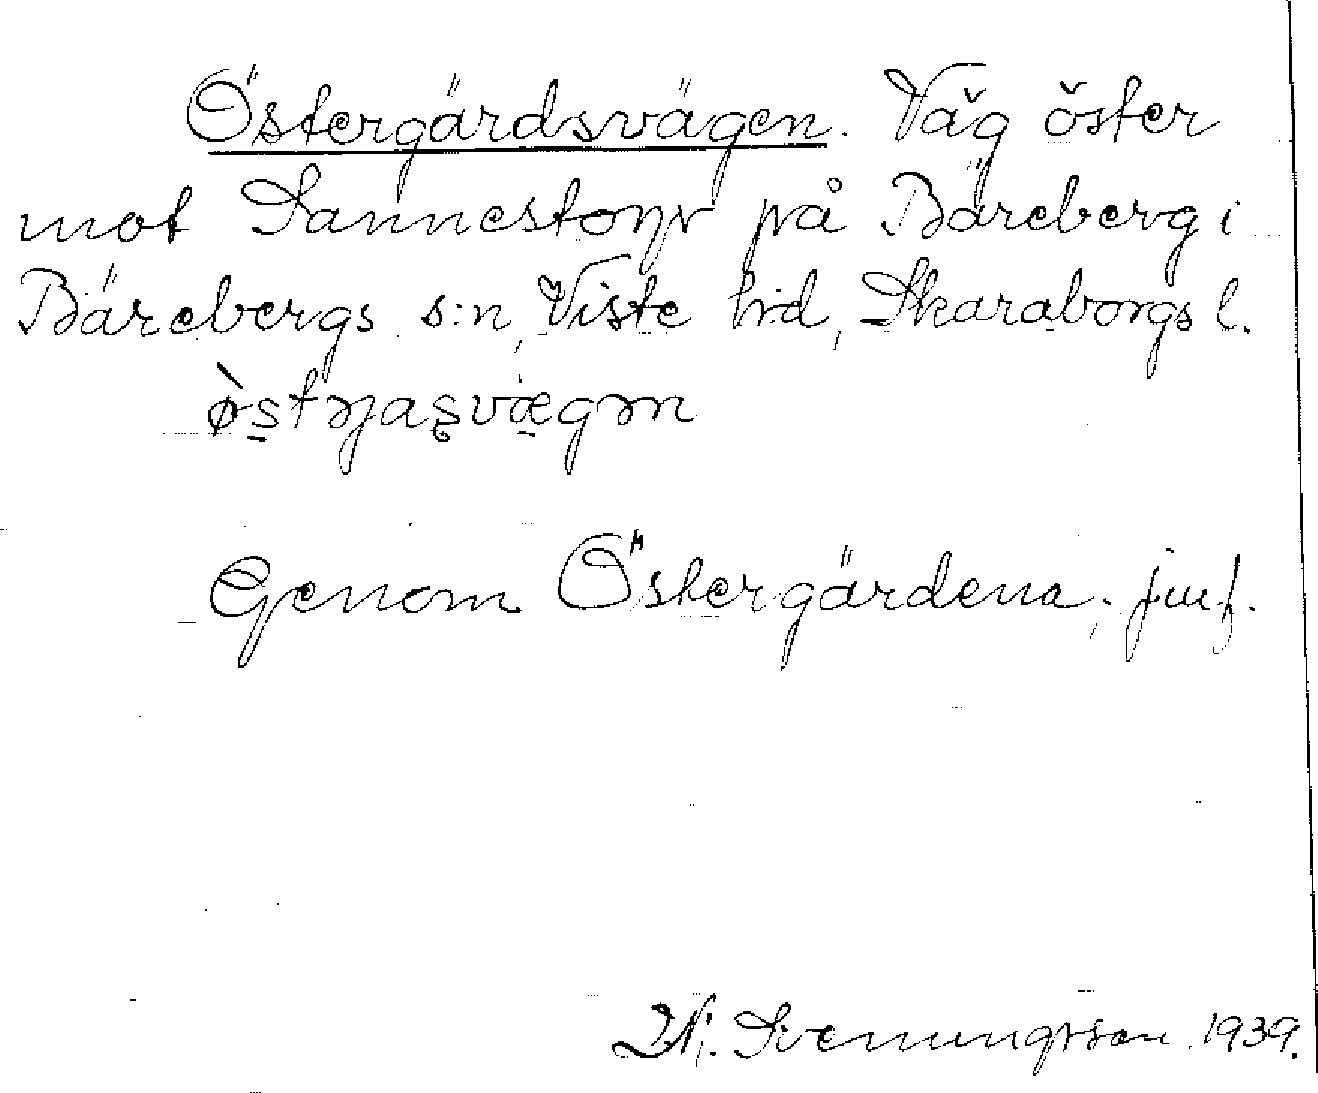 Östergärdsvägen. Väg öster
mot Sannestorp på Bäreberg i
Bärebergs s:n, Viste hd, Skaraborgs l.
Genom Östergärdena; jmf.
Svenungsson 1939.